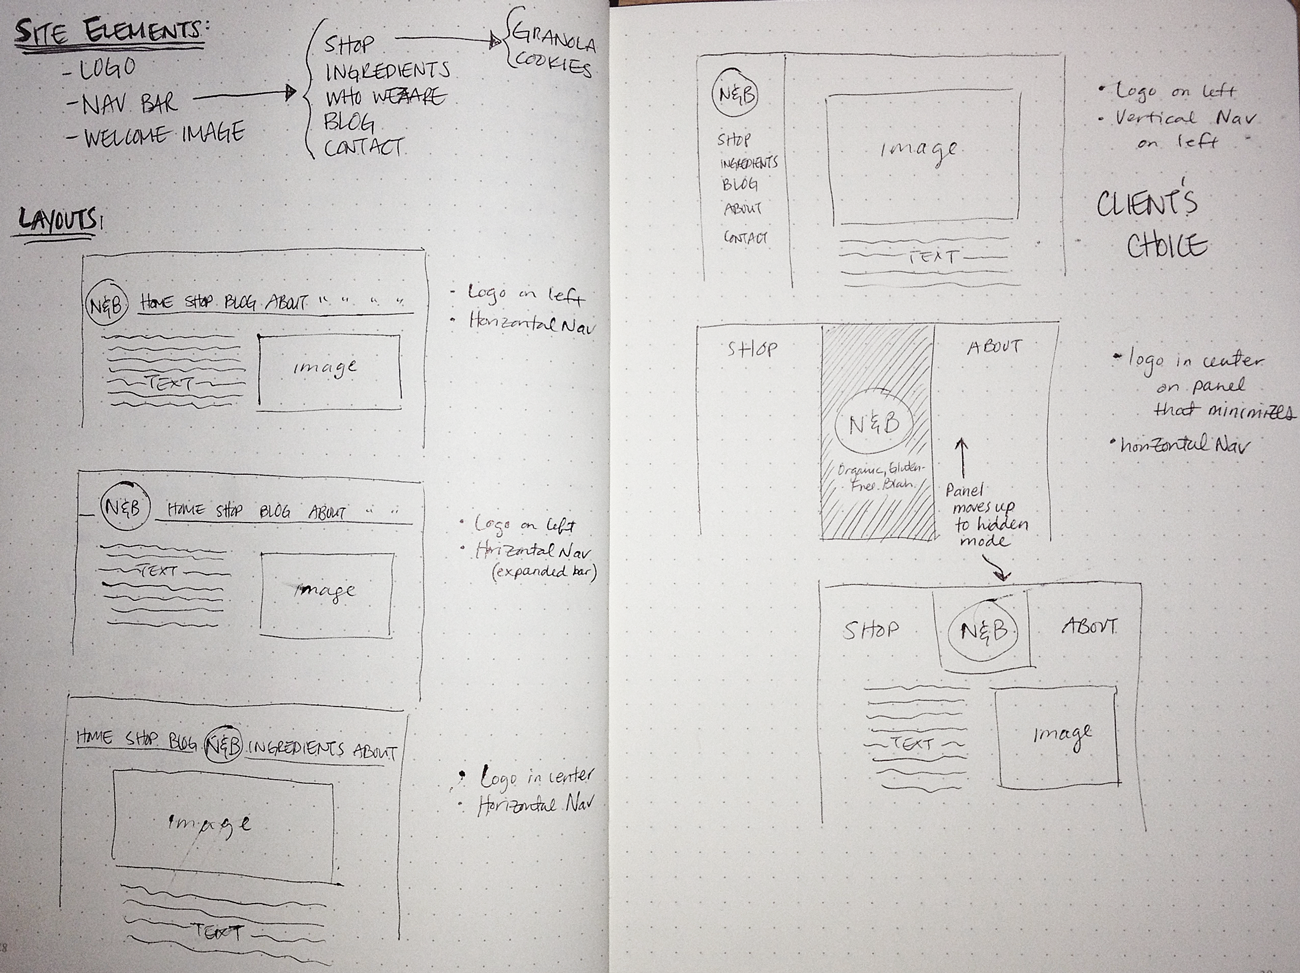 SITE ELEMENTS:
- LOGO
- NAV BAR
- WELCOME IMAGE
SHOP
INGREDIENTS
WHO WE ARE
BLOG
CONTACT
GRANOLA
COOKIES
LAYOUTS:
N&B HOME SHOP BLOG ABOUT " " " "
TEXT
image
- Logo on left
• Horizontal Nav
N&B HOME SHOP BLOG ABOUT " "
TEXT
image
• Logo on left
• Horizontal Nav
(expanded bar)
HOME SHOP BLOG N&B INGREDIENTS ABOUT
image
TEXT
• Logo in center
• Horizontal Nav
N&B
SHOP
INGREDIENTS
BLOG
ABOUT
CONTACT
image
TEXT
• Logo on left
• Vertical Nav
on left
CLIENT'S
CHOICE
SHOP
N&B
Organic, Gluten-
Free. Blah.
ABOUT
Panel
moves up
to hidden
mode
• logo in center
on panel
that minimizes
• horizontal Nav
SHOP N&B ABOUT
TEXT
image